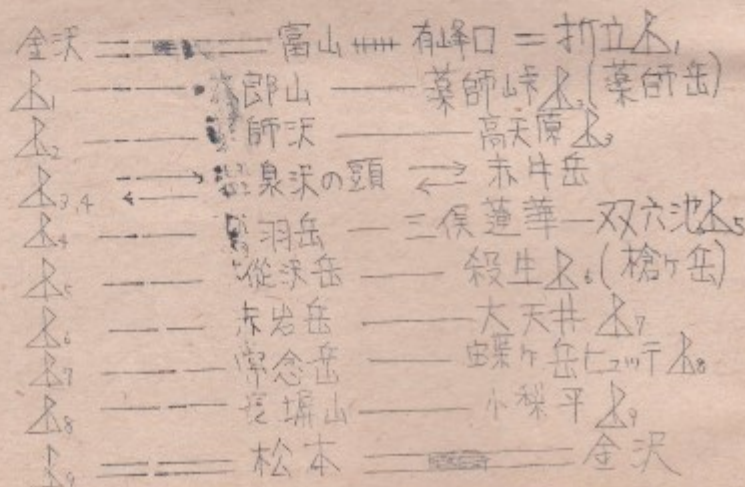 金沢 富山 有峰口 折立 1
1 郎山 薬師峠 2 (薬師岳)
2 師沢 高天原 3
3,4 泉沢の頭 赤牛岳
4 羽岳 三俣蓮華 双六池 5
5 樅沢岳 殺生 6 (槍ヶ岳)
6 赤岩岳 大天井 7
7 常念岳 蝶ヶ岳ヒュッテ 8
8 長塀山 小梨平 9
9 松本 金沢